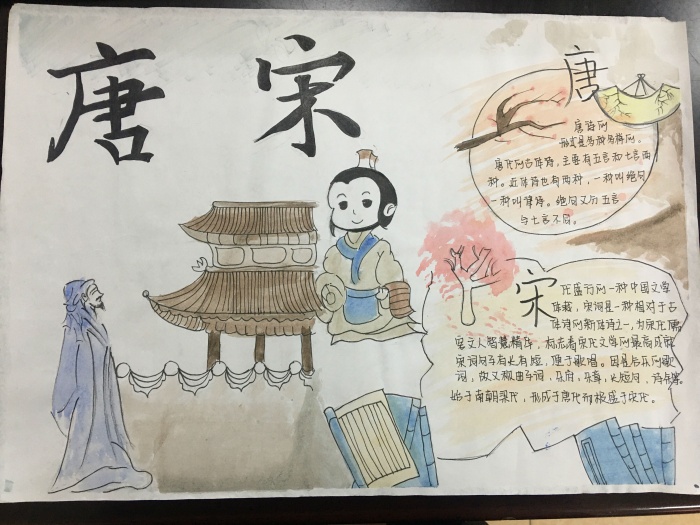 唐 宋
唐
唐诗的
形式是多种多样的。
唐代的古体诗，主要有五言和七言两
种。近体诗也有两种，一种叫绝句
一种叫律诗。绝句又分五言
与七言不同。
宋
代盛行的一种中国文学
体裁，宋词是一种相对于古
体诗的新体诗之一，为宋代儒
客文人智慧精华，标志着宋代文学的最高成就
宋词句子有长有短，便于歌唱。因是合乐的歌
词，故又称曲子词、乐府、乐章、长短句、诗余等。
始于南朝梁代，形成于唐代而极盛于宋代。